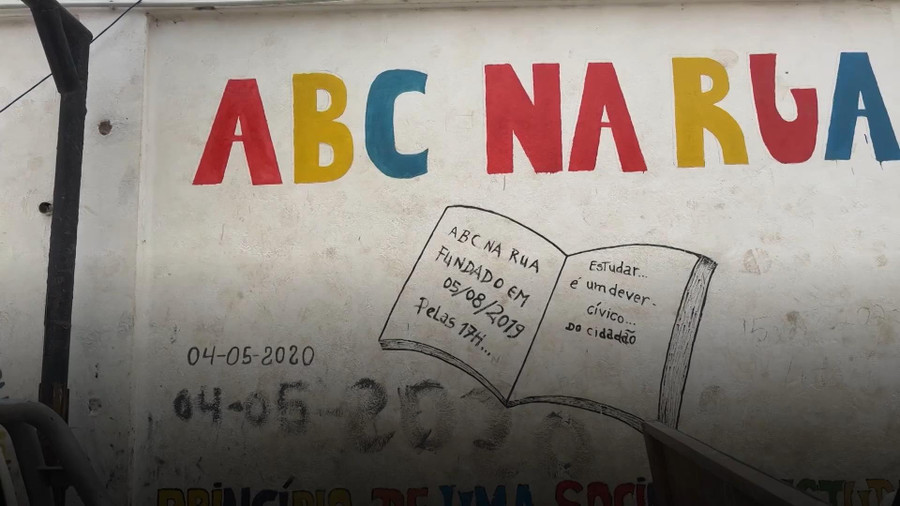 ABC NA RUA
ABC NA RUA
FUNDADO EM
05/08/2019
Pelas 17H...
Estudar...
é um dever.
cívico...
DO cidadão
04-05-2020
04-05-2020
PRINCÍPIO DE UMA